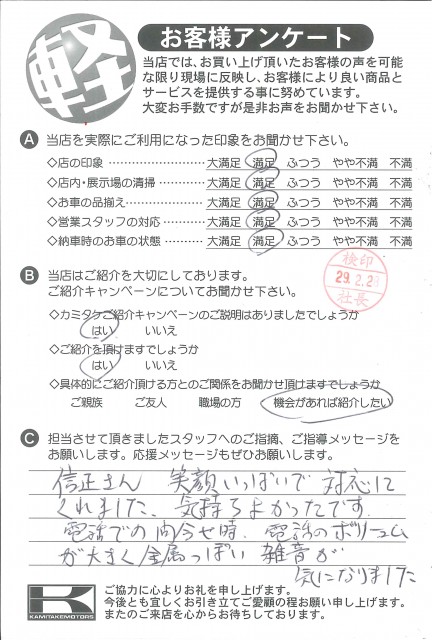 軽
お客様アンケート
当店では、お買い上げ頂いたお客様の声を可能
な限り現場に反映し、お客様により良い商品と
サービスを提供する事に努めています。
大変お手数ですが是非お声をお聞かせ下さい。
A 当店を実際にご利用になった印象をお聞かせ下さい。
◇店の印象 ………………… 大満足 満足 ふつう やや不満 不満
◇店内・展示場の清掃………… 大満足 満足 ふつう やや不満 不満
◇お車の品揃え……………… 大満足 満足 ふつう やや不満 不満
◇営業スタッフの対応 ……… 大満足 満足 ふつう やや不満 不満
◇納車時のお車の状態 ……… 大満足 満足 ふつう やや不満 不満
検印
29.2.2
社長
B 当店はご紹介を大切にしております。
ご紹介キャンペーンについてお聞かせ下さい。
◇カミタケご紹介キャンペーンのご説明はありましたでしょうか
はい いいえ
◇ご紹介を頂けますでしょうか
はい いいえ
◇具体的にご紹介頂ける方とのご関係をお聞かせ頂けますでしょうか
ご親族 ご友人 職場の方 機会があれば紹介したい
C 担当させて頂きましたスタッフへのご指摘、ご指導メッセージを
お願いします。応援メッセージもぜひお願いします。
信正さん 笑顔いっぱいで 対応して
くれました、気持ちよかったです。
電話での問合せ時、電話のボリューム
が大きく金属っぽい 雑音が
気になりました
K
KAMITAKEMOTORS
ご協力に心よりお礼を申し上げます。
今後とも宜しくお引き立てご愛顧の程お願い申し上げます。
またのご来店を心からお待ちしております。